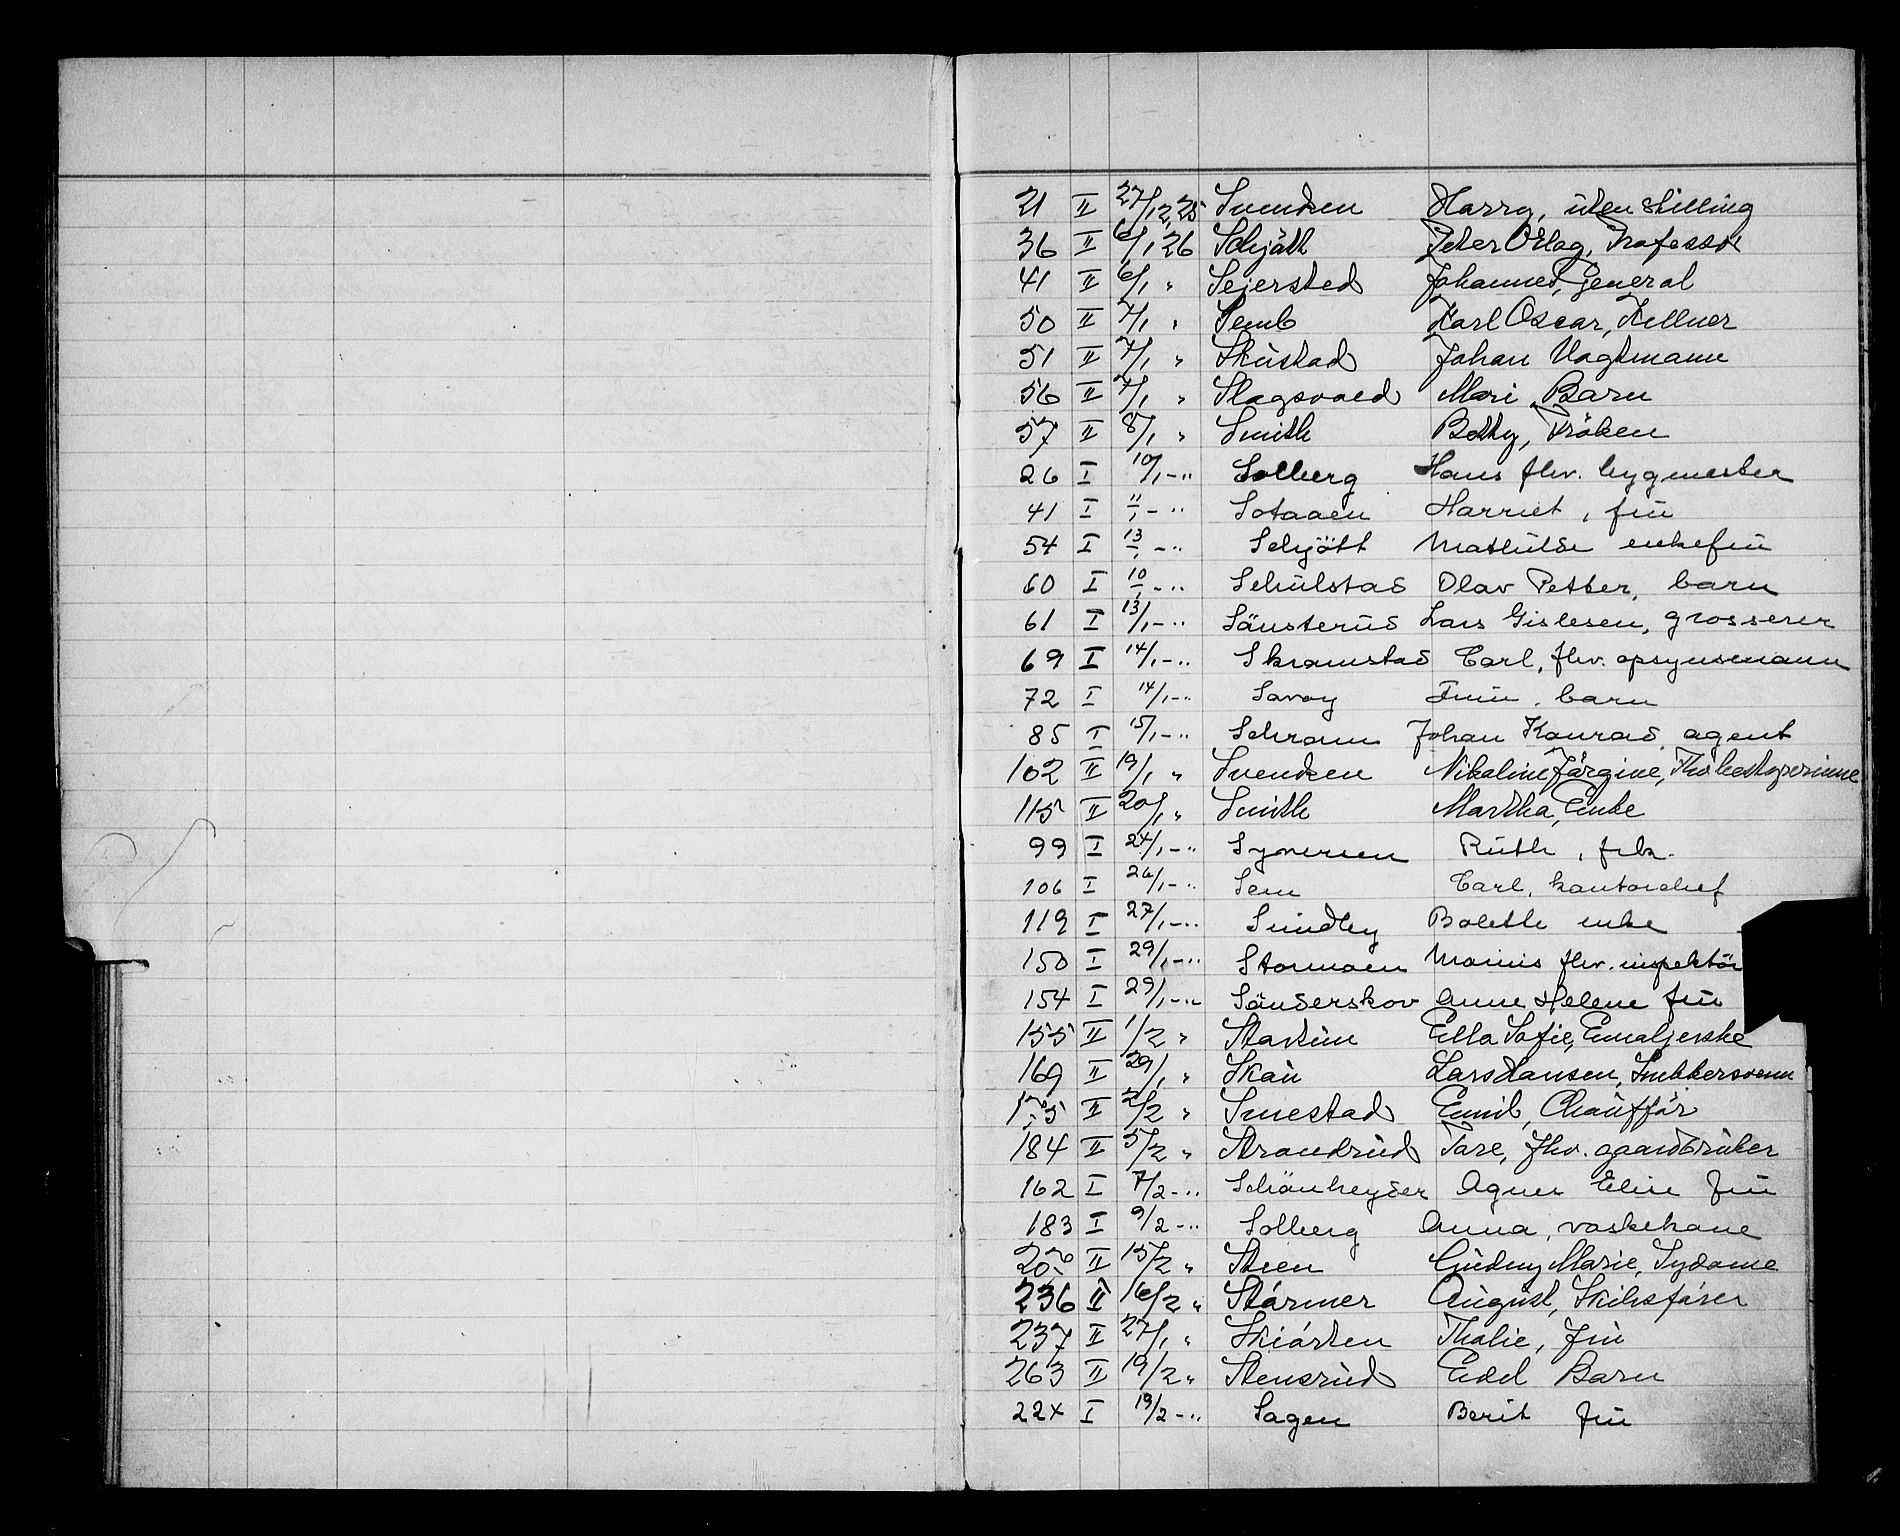 21 II 27/12 25 Svendsen Harry, uten stilling
36 II 6/1 26 Schjött Peter Olrog, Professor
41 II 6/1 " Sejersted Johannes, General
50 II 7/1 " Semb Karl Oscar, Kellner
51 II 7/1 " Skustad Johan Vagtmann
56 II 7/1 " Slagsvold Mari Barn
57 II 8/1 " Smith Betty, Fröken
26 I 10/1 - " Solberg Hans fhv. bygmester
41 I 11/1 - " Sotaaen Harriet, fru
54 I 13/1 - " Schjött Mathilde enkefru
60 I 10/1 - " Schulstad Olav Petter, barn
61 I 13/1 - " Sönsterud Lars Gislesen, grosserer
69 I 14/1 - " Skramstad Carl, fhv. opsynsmann
72 I 14/1 - " Savoy barn
85 I 15/1 - " Schramm Johan Konrad agent
102 II 19/1 " Svendsen Nikoline Jörgine, Fhv.
115 II 20/1 " Smith Martha, Enke
99 I 24/1 - " Syversen Ruth, frk.
106 I 26/1 - " Sem Carl, kontorchef
119 I 27/1 - " Sundby Bolette enke
150 I 29/1 - " Stormoen Marius fhv. inspektör
154 I 29/1 - " Sönderskov Anne Helene fru
155 II 1/2 " Startum Ella Sofie, Emaljerske
169 II 29/1 " Skau Lars Hansen, Snekkersvenn
175 II 2/2 " Smestad Emil, Chaufför
184 II 5/2 " Strandrud Tore, fhv. gaardbruker
162 I 7/2 - " Schönheyder Agnes Elise fru
183 I 9/2 - " Solberg Anna, vaskekone
II 15/2 " Steen Gudny Marie, Sydame
236 II 16/2 " Störmer August, Skibsförer
237 II 27/1 " Skiörten Thalie, fru
263 II 19/2 " Stensrud Edel Barn
224 I 19/2 - " Sagen Berit fru